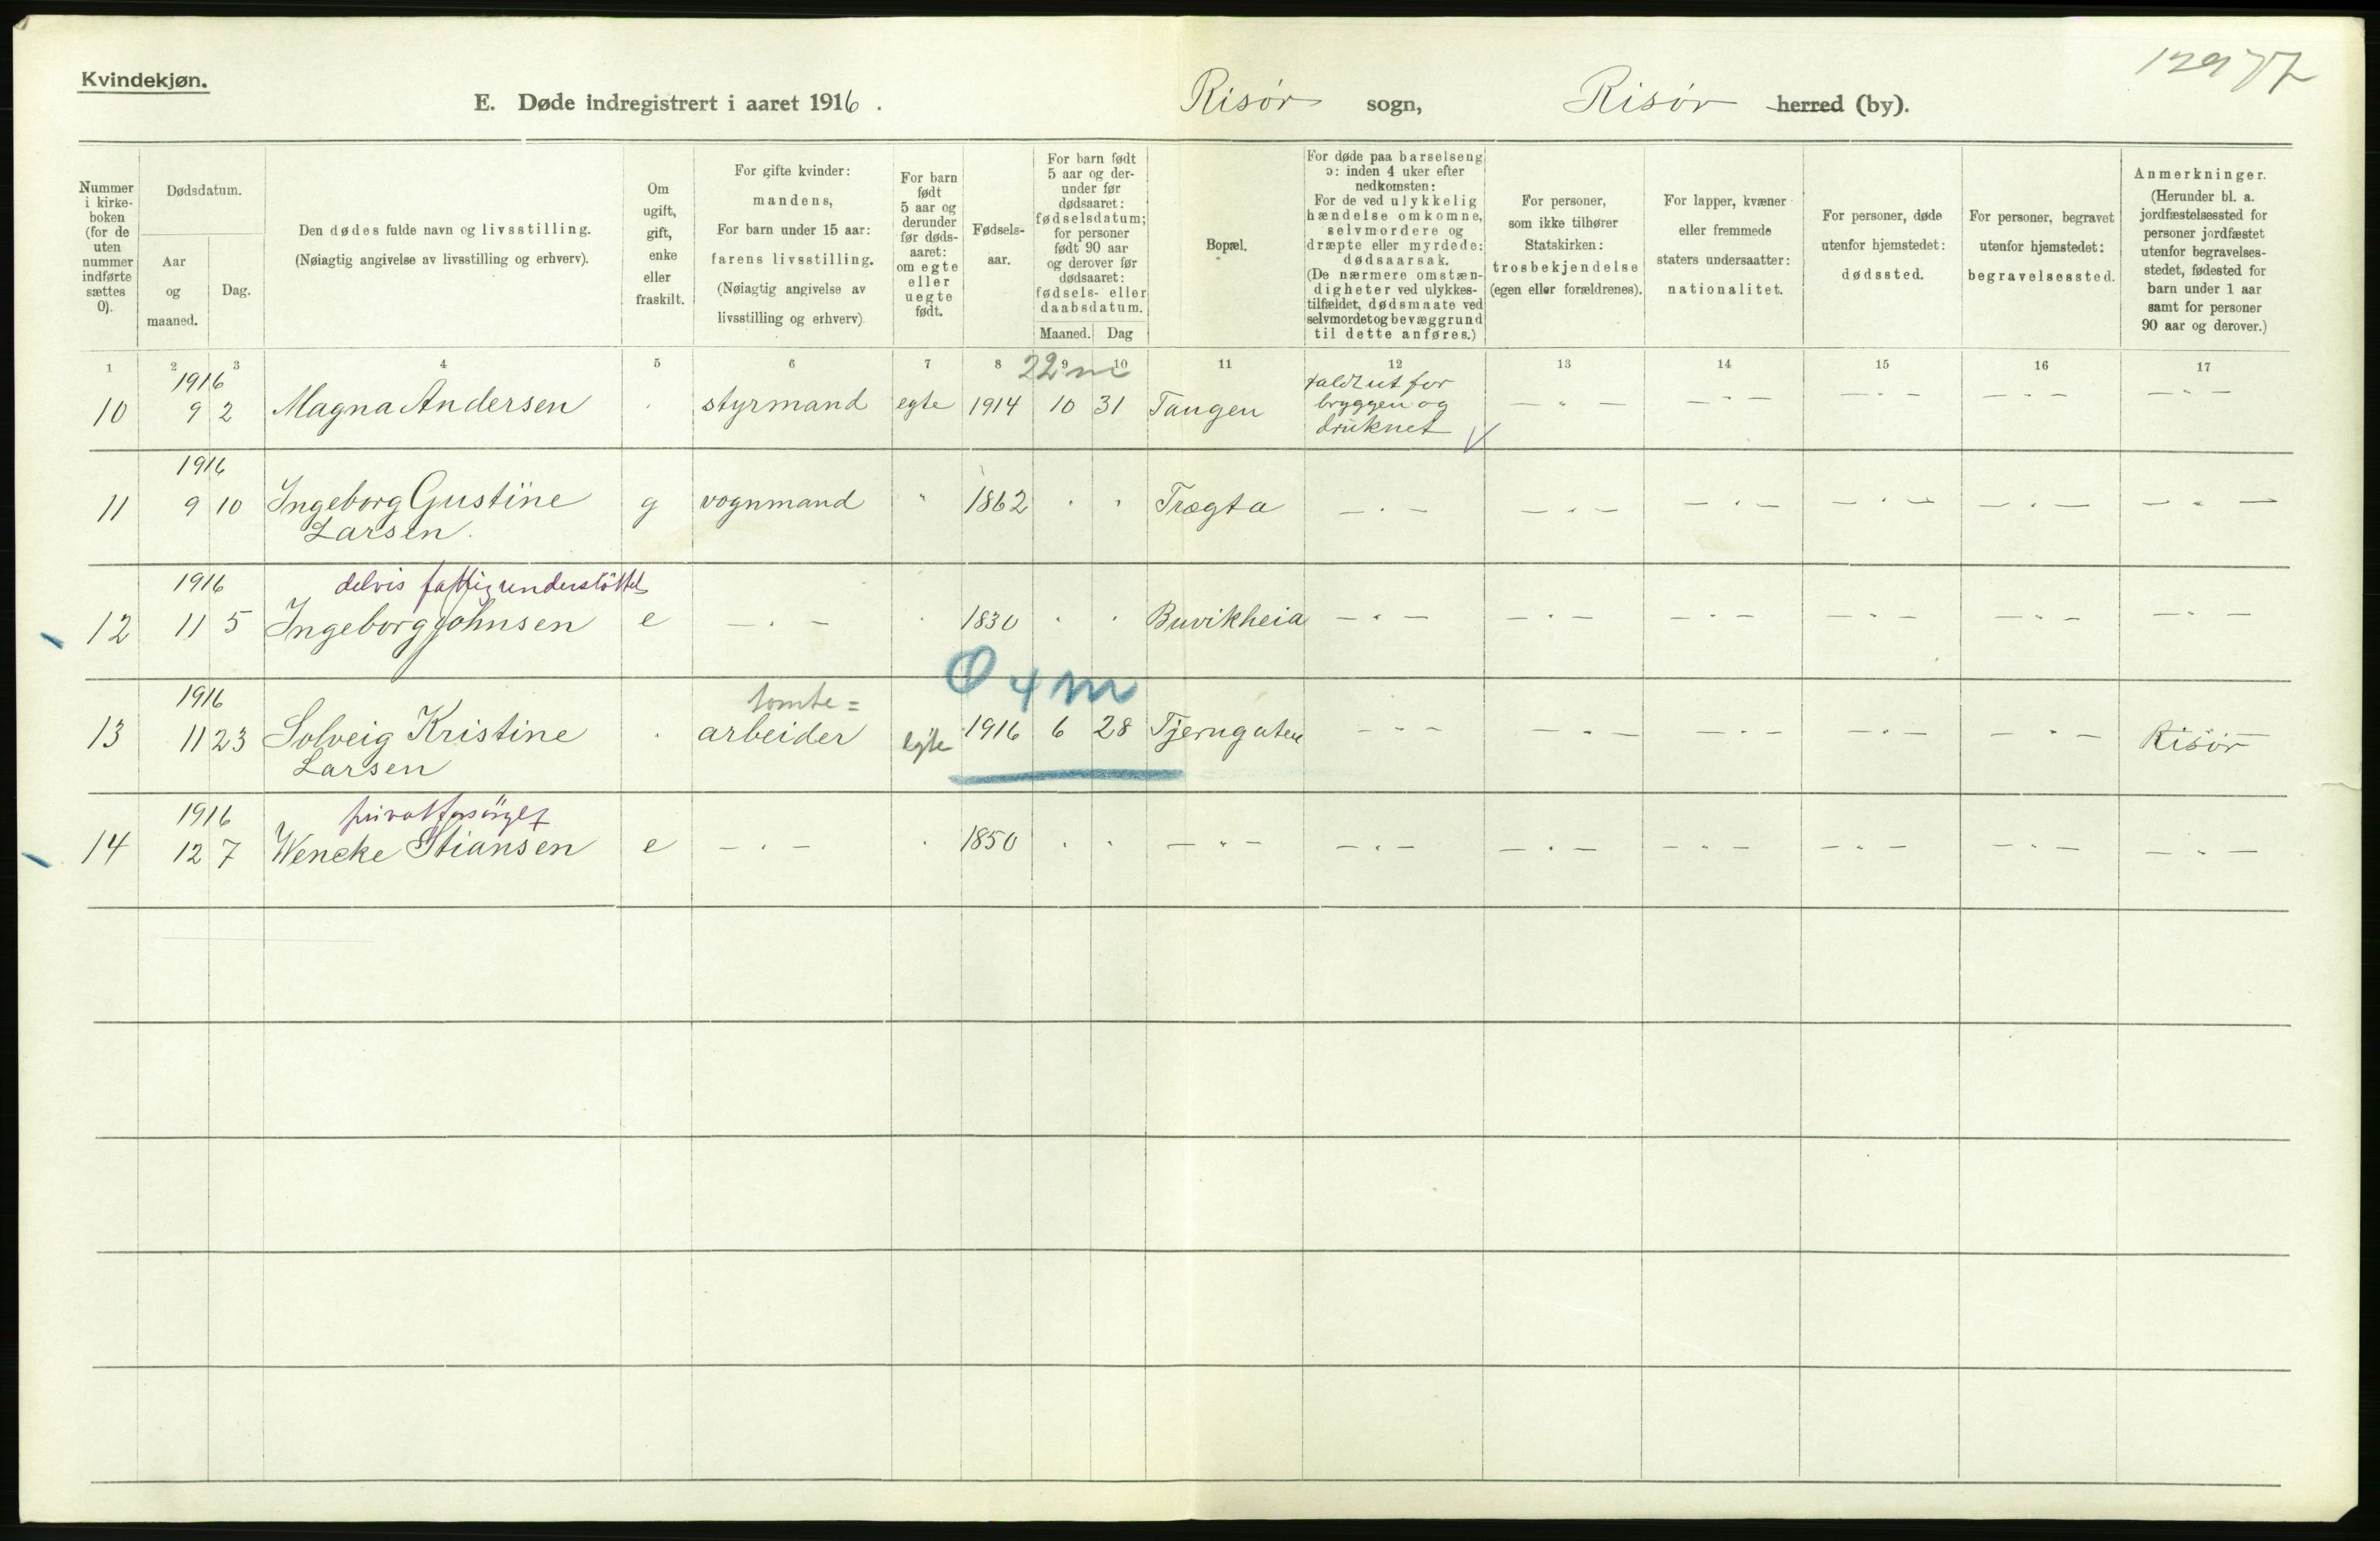 Kvindekjøn.
E. Døde indregistrert i aaret 1916.
Risør sogn, Risør herred (by).
Nummer i kirke-
boken
(for de
uten
nummer
indførte
sættes
0).
Dødsdatum.
Aar
og
maaned.
Dag.
Den dødes fulde navn og livsstilling.
(Nøiagtig angivelse av livsstilling og erhverv).
Om
ugift,
gift,
enke
eller
fraskilt.
For gifte kvinder:
mandens,
For barn under 15 aar:
farens livsstilling.
(Nøiagtig angivelse av
livsstilling og erhverv)
For barn
født
5 aar og
derunder
før døds-
aaret:
om egte
eller
uegte
født.
Fødsels-
aar.
For barn født
5 aar og der-
under før
dødsaaret:
fødselsdatum;
for personer
født 90 aar
og derover før
dødsaaret:
fødsels- eller
daabsdatum.
Maaned. Dag
Bopæl.
For døde paa barselseng
ɔ: inden 4 uker efter
nedkomsten:
For de ved ulykkelig
hændelse omkomne,
selvmordere og
dræpte eller myrdede:
dødsaarsak.
(De nærmere omstæn-
digheter ved ulykkes-
tilfældet, dødsmaate ved
selvmordet og bevæggrund
til dette anføres.)
For personer,
som ikke tilhører
Statskirken:
trosbekjendelse
(egen eller forældrenes).
For lapper, kvæner
eller fremmede
staters undersaatter:
nationalitet.
For personer, døde
utenfor hjemstedet:
dødssted.
For personer, begravet
utenfor hjemstedet:
begravelsessted.
Anmerkninger.
(Herunder bl. a.
jordfæstelsessted for
personer jordfæstet
utenfor begravelses-
stedet, fødested for
barn under 1 aar
samt for personer
90 aar og derover.)
1 2 3 4 5 6 7 8 9 10 11 12 13 14 15 16 17
22 m
1916
10 9 2 Magna Andersen . styrmand egte 1914 10 31 Tangen faldt ut for
bryggen og
druknet
— " — — " — — " — — " — — " —
1916
11 9 10 Ingeborg Gustine g vognmand " 1862 . . Trægta — . — — . — — . — — . — — . — — . —
Larsen.
1916 delvis fattigunderstöttet
12 11 5 Ingeborg Johnsen e — . — . 1830 . . Buvikheia — " — — " — — " — — " — — " — — " —
0 4 m
1916 tomte=
13 11 23 Solveig Kristine . arbeider egte 1916 6 28 Tjerngaten — " — — " — — " — — " — — " — Risör
Larsen
1916 privat forsörget
14 12 7 Wencke Stiansen e — . — . 1850 . . — " — — " — — " — — " — — " — — " — — " —